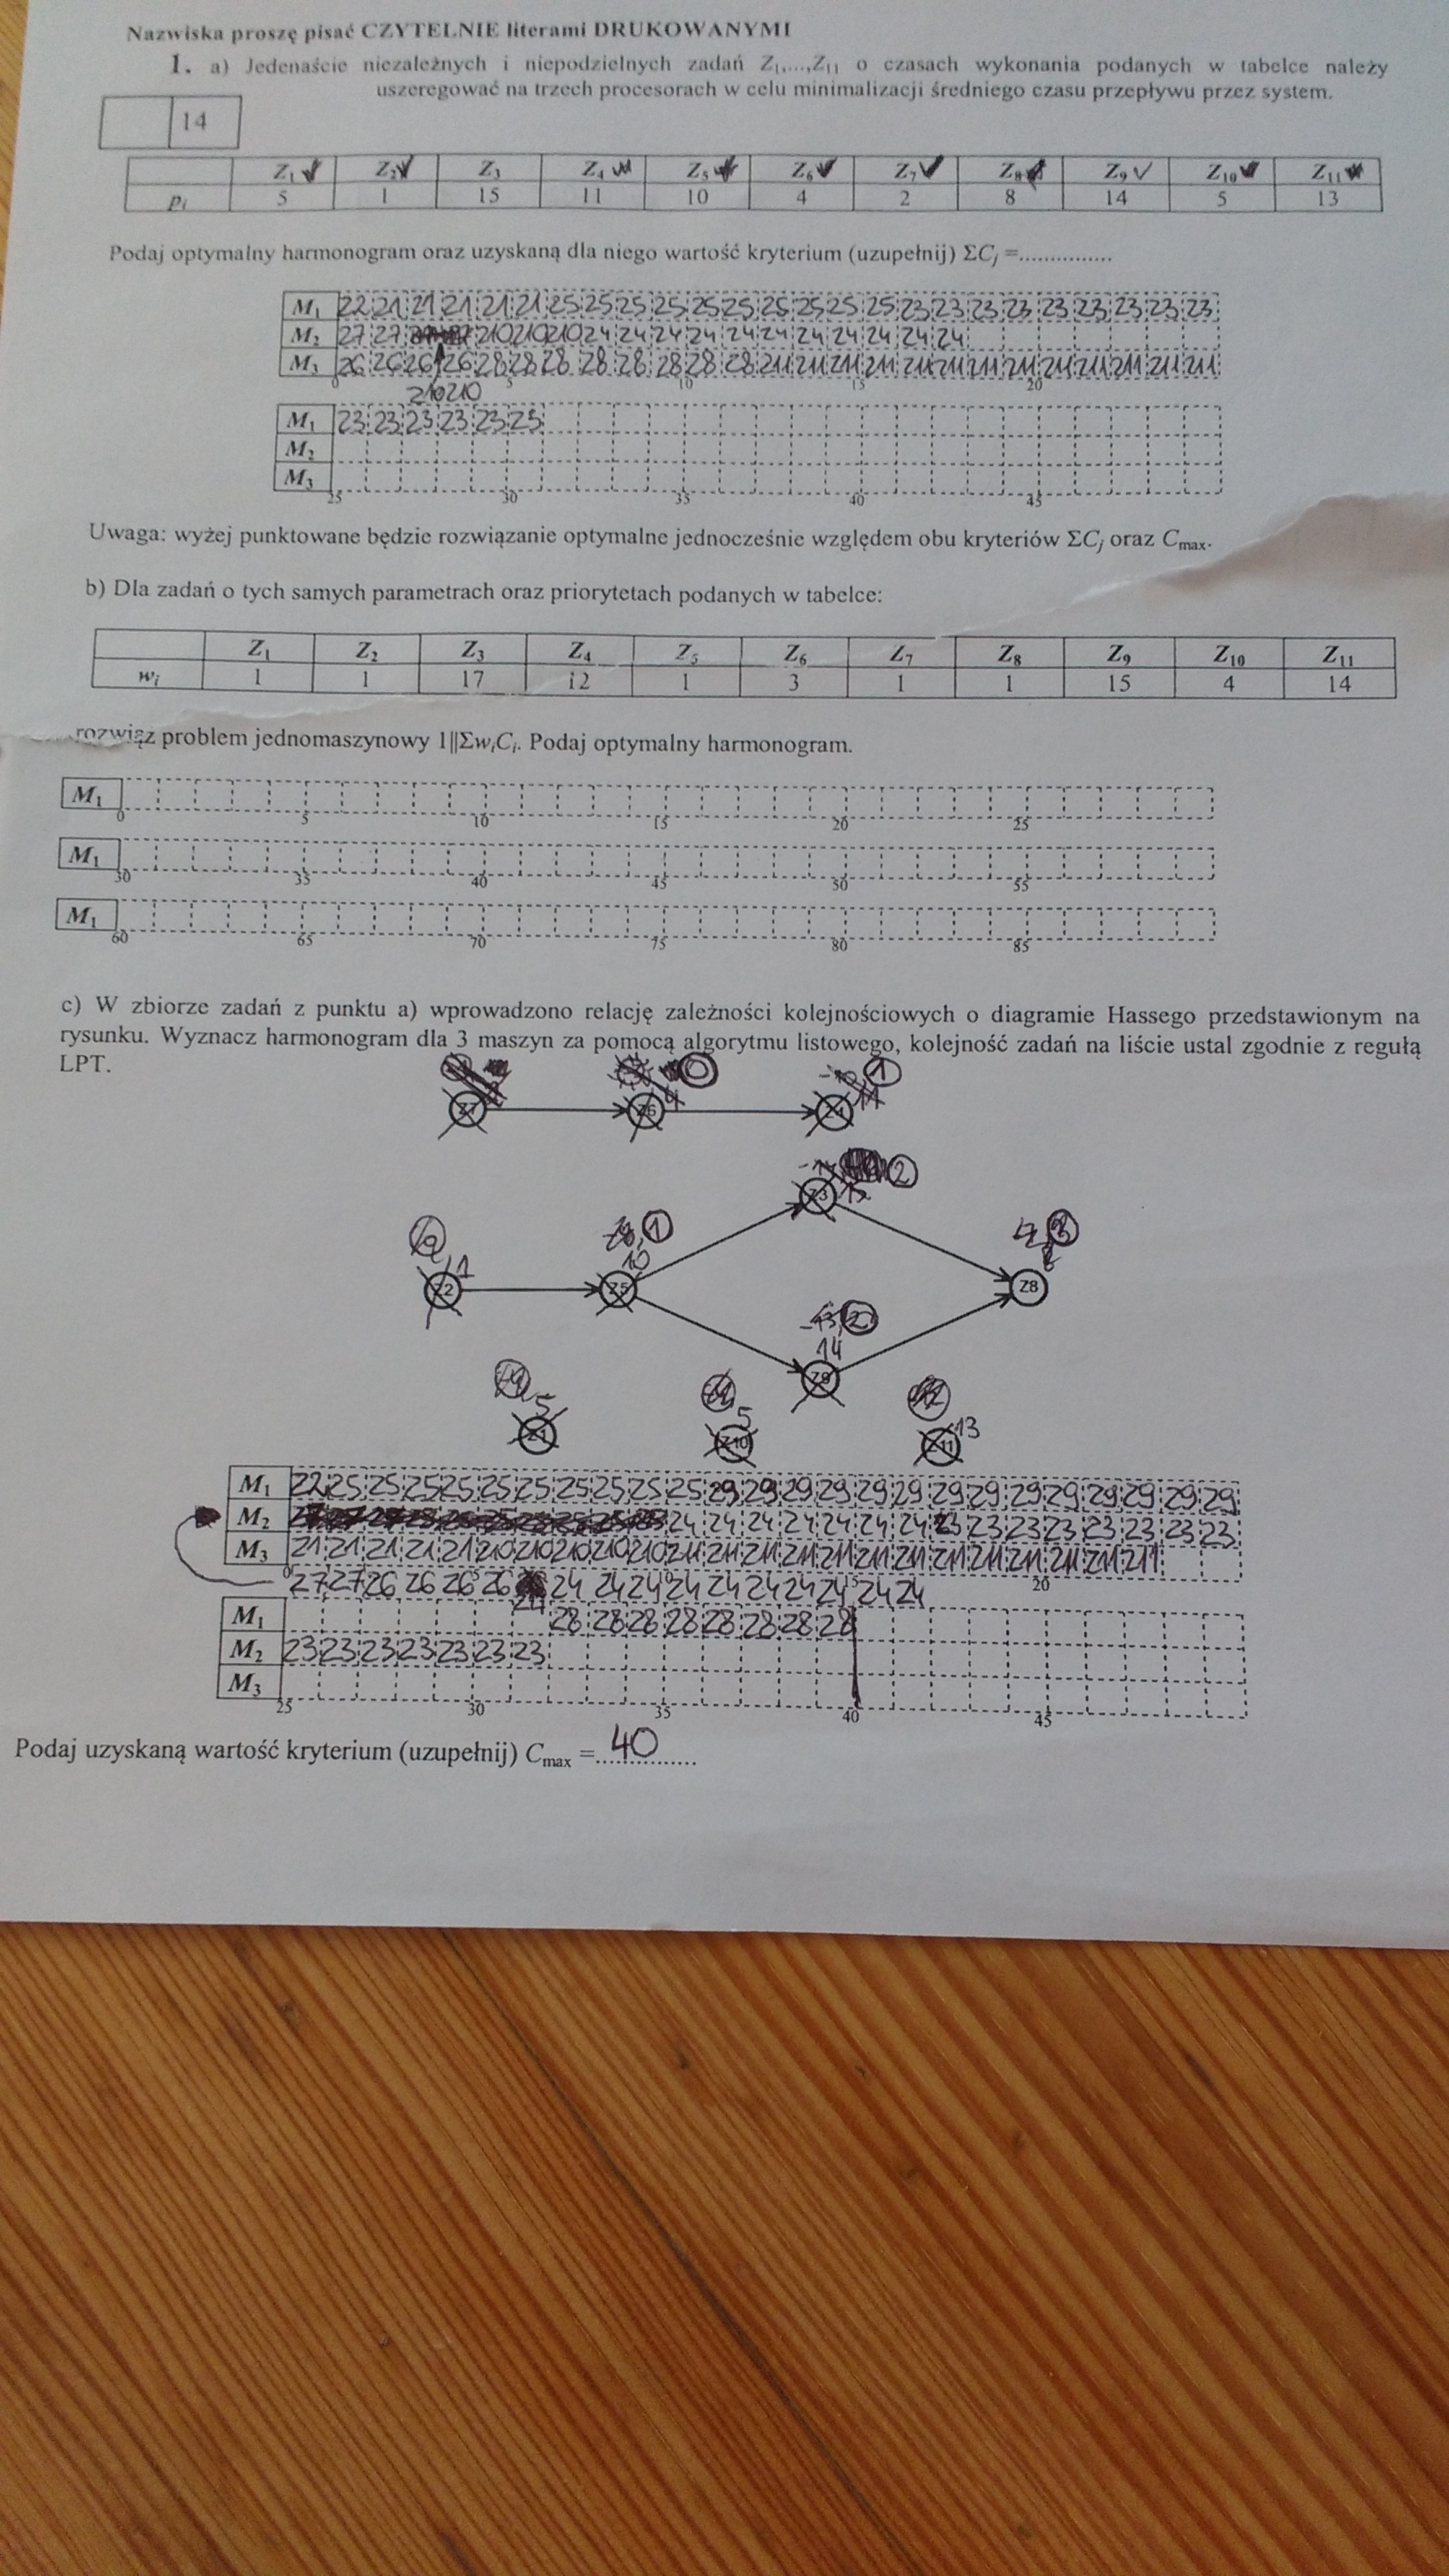 Nazwiska proszę pisać CZYTELNIE literami DRUKOWANYMI
1. a) Jedenaście niezależnych i niepodzielnych zadań Z1,...,Z11 o czasach wykonania podanych w tabelce należy
uszeregować na trzech procesorach w celu minimalizacji średniego czasu przepływu przez system.
14
Z1 Z2 Z3 Z4 Z5 Z6 Z7 Z8 Z9 Z10 Z11
pi 5 1 15 11 10 4 2 8 14 5 13
Podaj optymalny harmonogram oraz uzyskaną dla niego wartość kryterium (uzupełnij) ΣCj =...............
M1 Z2 Z1 Z1 Z1 Z1 Z1 Z5 Z5 Z5 Z5 Z5 Z5 Z5 Z5 Z5 Z5 Z3 Z3 Z3 Z3 Z3 Z3 Z3 Z3 Z3
M2 Z7 Z7 Z10 Z10 Z10 Z4 Z4 Z4 Z4 Z4 Z4 Z4 Z4 Z4 Z4 Z4
M3 Z6 Z6 Z6 Z6 Z8 Z8 Z8 Z8 Z8 Z8 Z8 Z8 Z11 Z11 Z11 Z11 Z11 Z11 Z11 Z11 Z11 Z11 Z11 Z11 Z11
0 5 10 15 20
Z10 Z10
M1 Z3 Z3 Z3 Z3 Z3 Z3
M2
M3
25 30 35 40 45
Uwaga: wyżej punktowane będzie rozwiązanie optymalne jednocześnie względem obu kryteriów ΣCj oraz Cmax.
b) Dla zadań o tych samych parametrach oraz priorytetach podanych w tabelce:
Z1 Z2 Z3 Z4 Z5 Z6 Z7 Z8 Z9 Z10 Z11
wi 1 1 17 12 1 3 1 1 15 4 14
rozwiąż problem jednomaszynowy 1||ΣwiCi. Podaj optymalny harmonogram.
M1
0 5 10 15 20 25
M1
30 35 40 45 50 55
M1
60 65 70 75 80 85
c) W zbiorze zadań z punktu a) wprowadzono relację zależności kolejnościowych o diagramie Hassego przedstawionym na
rysunku. Wyznacz harmonogram dla 3 maszyn za pomocą algorytmu listowego, kolejność zadań na liście ustal zgodnie z regułą
LPT.
0 1
Z7 Z6 4 Z4 11
2
Z3 15
1 3
10 8
Z2 1 Z5 Z8
2
14
Z9
5 5 13
Z1 Z10 Z11
M1 Z2 Z5 Z5 Z5 Z5 Z5 Z5 Z5 Z5 Z5 Z5 Z9 Z9 Z9 Z9 Z9 Z9 Z9 Z9 Z9 Z9 Z9 Z9 Z9 Z9
M2 Z4 Z4 Z4 Z4 Z4 Z4 Z4 Z3 Z3 Z3 Z3 Z3 Z3 Z3 Z3
M3 Z1 Z1 Z1 Z1 Z1 Z10 Z10 Z10 Z10 Z10 Z11 Z11 Z11 Z11 Z11 Z11 Z11 Z11 Z11 Z11 Z11 Z11 Z11
0 20
Z7 Z7 Z6 Z6 Z6 Z6 Z4 Z4 Z4 Z4 Z4 Z4 Z4 Z4 Z4 Z4 Z4
M1 Z8 Z8 Z8 Z8 Z8 Z8 Z8 Z8
M2 Z3 Z3 Z3 Z3 Z3 Z3 Z3
M3
25 30 35 40 45
Podaj uzyskaną wartość kryterium (uzupełnij) Cmax =...40...